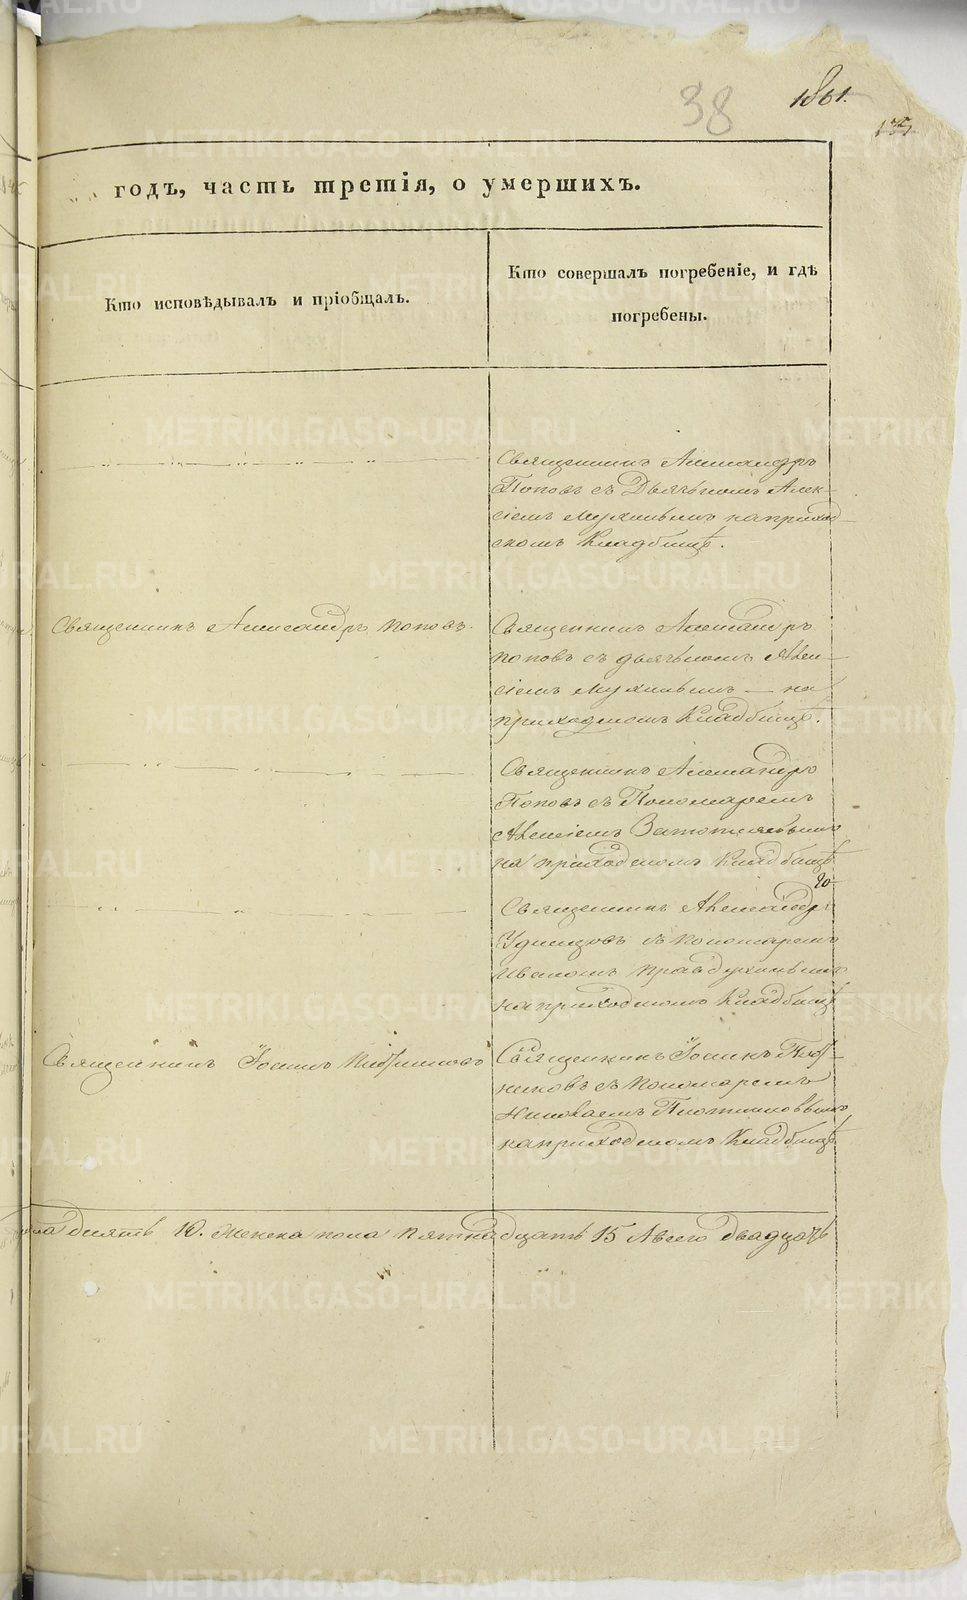 38
1861.
135
годъ, часть третія, о умершихъ.
Кто исповѣдывалъ и пріобщалъ.
Кто совершалъ погребеніе, и гдѣ
погребены.
Священникъ Александръ
Поповъ съ Дьячкомъ Алек-
сіемъ на приход-
скомъ Кладбищѣ.
Священникъ Александръ Поповъ.
Священникъ Александръ
Поповъ съ дьячкомъ Алек-
сіемъ — на
приходскомъ Кладбищѣ.
Священникъ Александръ
Поповъ съ Пономаремъ
Алексіемъ
на приходскомъ Кладбищѣ
Священникъ Александръ
Удинцовъ съ пономаремъ
Иваномъ
на приходскомъ Кладбищѣ
Священникъ Іоаннъ Плотниковъ
Священникъ Іоаннъ Плот-
никовъ съ пономаремъ
Николаемъ Плотниковымъ
на приходскомъ Кладбищѣ
десять 10. Женска пола пятнадцать 15 А всего двадцать
METRIKI.GASO-URAL.RU